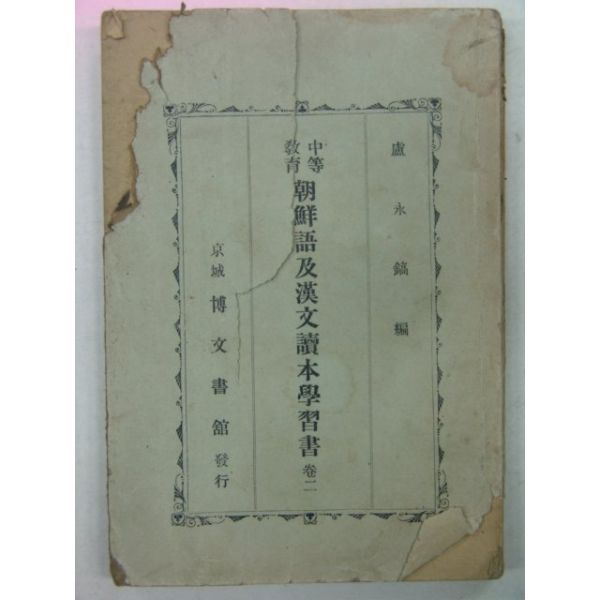 盧永鎬編
中等教育 朝鮮語及漢文讀本學習書 卷二
京城 博文書舘 發行